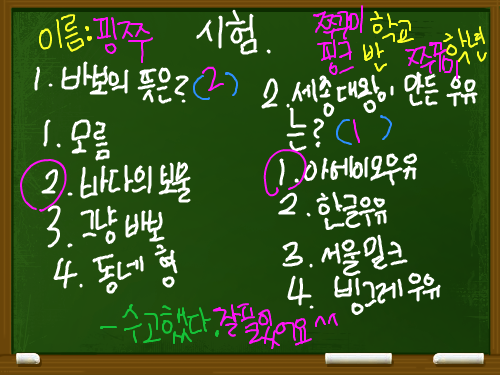 이름:핑쭈
시험.
쭈꾸미 학교
핑크 반 쭈꾸미 학년
1. 바보의 뜻은? (2)
1. 모름
2. 바다의 보물
3. 그냥 바보
4. 동네 형
2. 세종대왕이 만든 우유
는? (1)
1. 아에이오우유
2. 한글우유
3. 서울밀크
4. 빙그레 우유
- 수고했다. 잘풀었어요 ^^